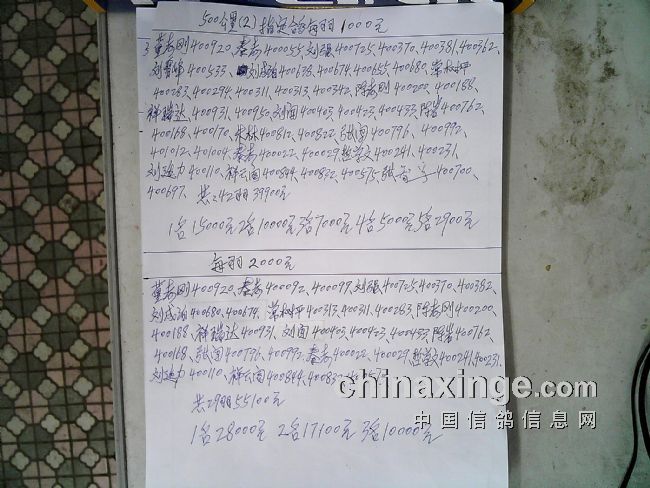 500公里(2)指定鸽每羽1000元
400920、秦 400055、刘强400725、400370、400381、400362、
刘 400533、刘 400638、400674、400655、400680、
400283、400294、400311、400313、400342、陈 刚400200、400188、
祥瑞达、400931、400950、刘 400403、400423、400433、陈 400762、
400168、400170、朱林400812、400822、张 400796、400992、
401012、401004、秦 400022、400029、 400241、400231、
刘 力400110、祥云阁400844、400842、400575、张 400700、
400697、共:42羽39900元
1名15000元2名10000元3名7000元4名5000元5名2900元
每羽2000元
400920、秦 400092、400099、刘强400725、400370、400382、
刘成 400680、400674、 400313、400311、400283、陈 刚400200、
400188、祥瑞达400931、刘 400403、400423、400433、陈 400762、
400168、张 400796、400992、秦 400022、400029、 400241、400231、
刘 力400110、祥云阁400844、
共29羽55100元
1名28000元 2名17100元 3名10000元
chinaxinge.com
中国信鸽信息网